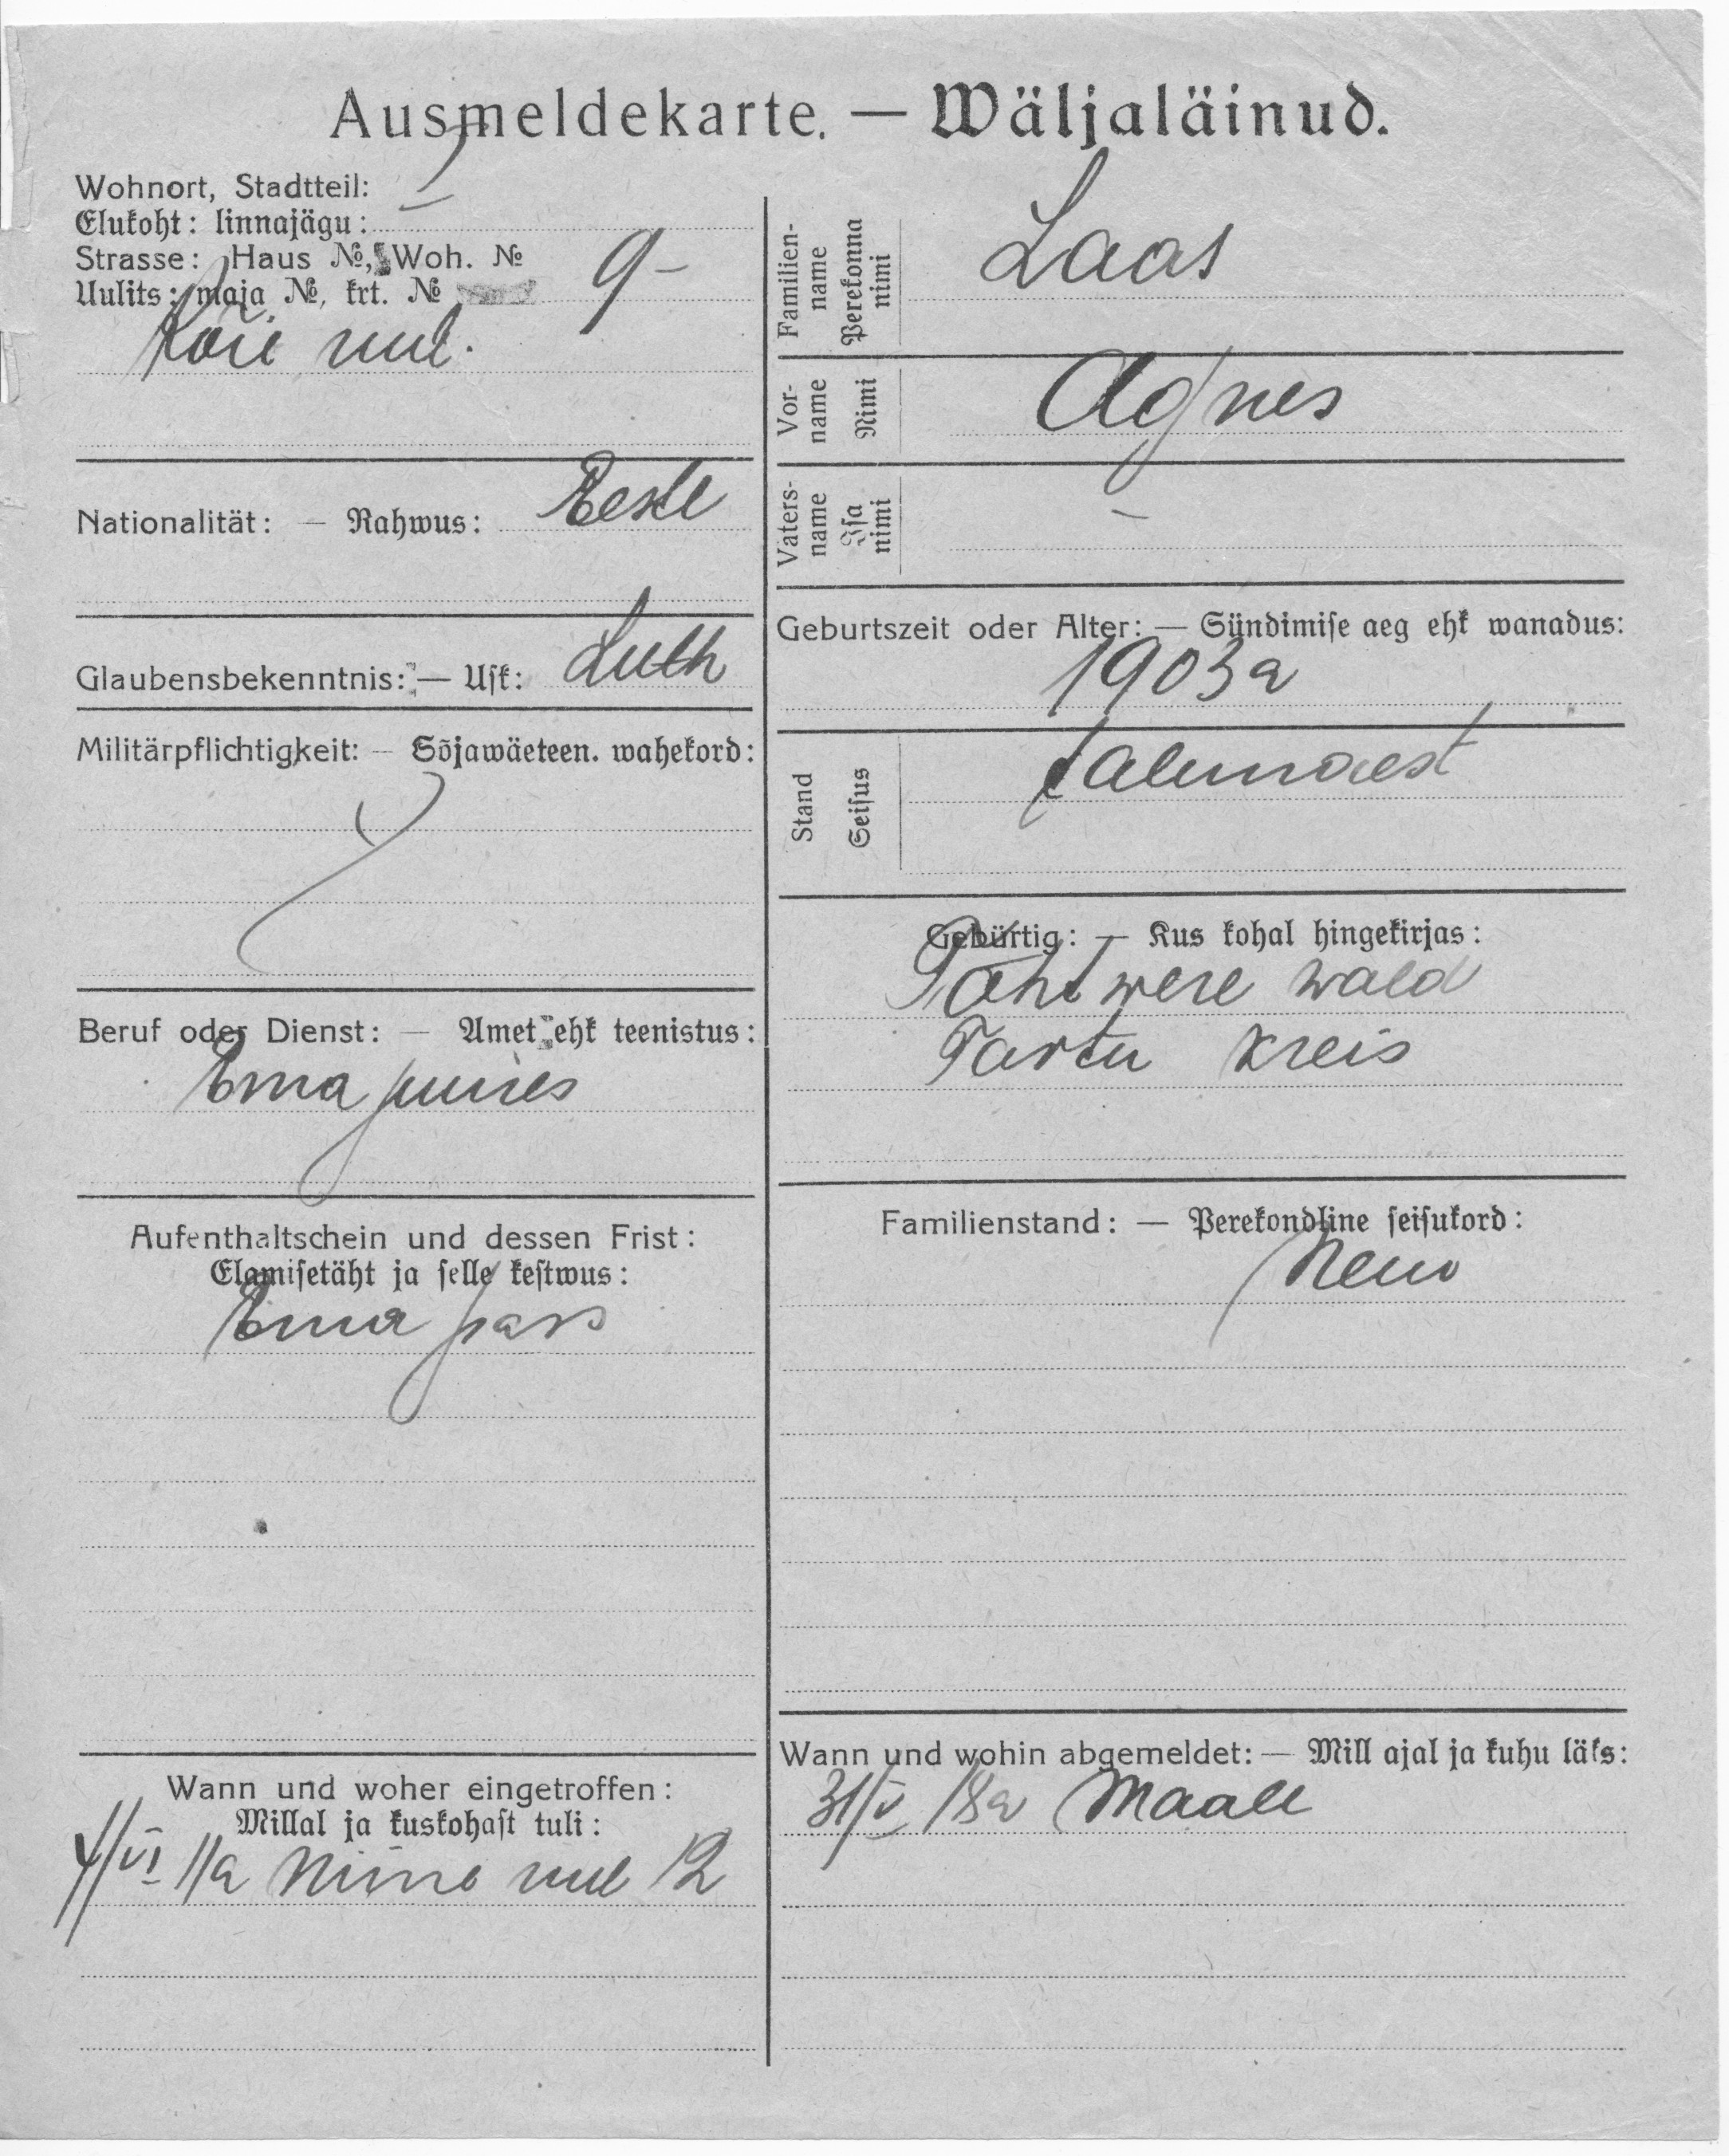 Ausmeldekarte. — Wäljaläinud.
Wohnort, Stadtteil:
Elukoht: linnajägu: I
Strasse: Haus №, Woh. №
Uulits: maja №, krt. № 9 –
uul.
Nationalität: — Rahwus: Eestl
Glaubensbekenntnis: — Usk: Luth
Militärpflichtigkeit: — Sõjawäeteen. wahekord:
Beruf oder Dienst: — Amet ehk teenistus:
Ema juures
Aufenthaltschein und dessen Frist:
Elamisetäht ja selle kestwus:
Ema pass
Wann und woher eingetroffen:
Millal ja kuskohast tuli:
4/VI 11a uul 12
Familien-name Perekonna nimi Laas
Vor-name Nimi Agnes
Vaters-name Isa nimi –
Geburtszeit oder Alter: — Sündimise aeg ehk wanadus:
1903a
Stand Seisus talunaest
Gebürtig: — Kus kohal hingekirjas:
Tähtwere wald
Tartu kreis
Familienstand: — Perekondline seisukord:
Neiu
Wann und wohin abgemeldet: — Mill ajal ja kuhu läks:
31/V 18a Maale